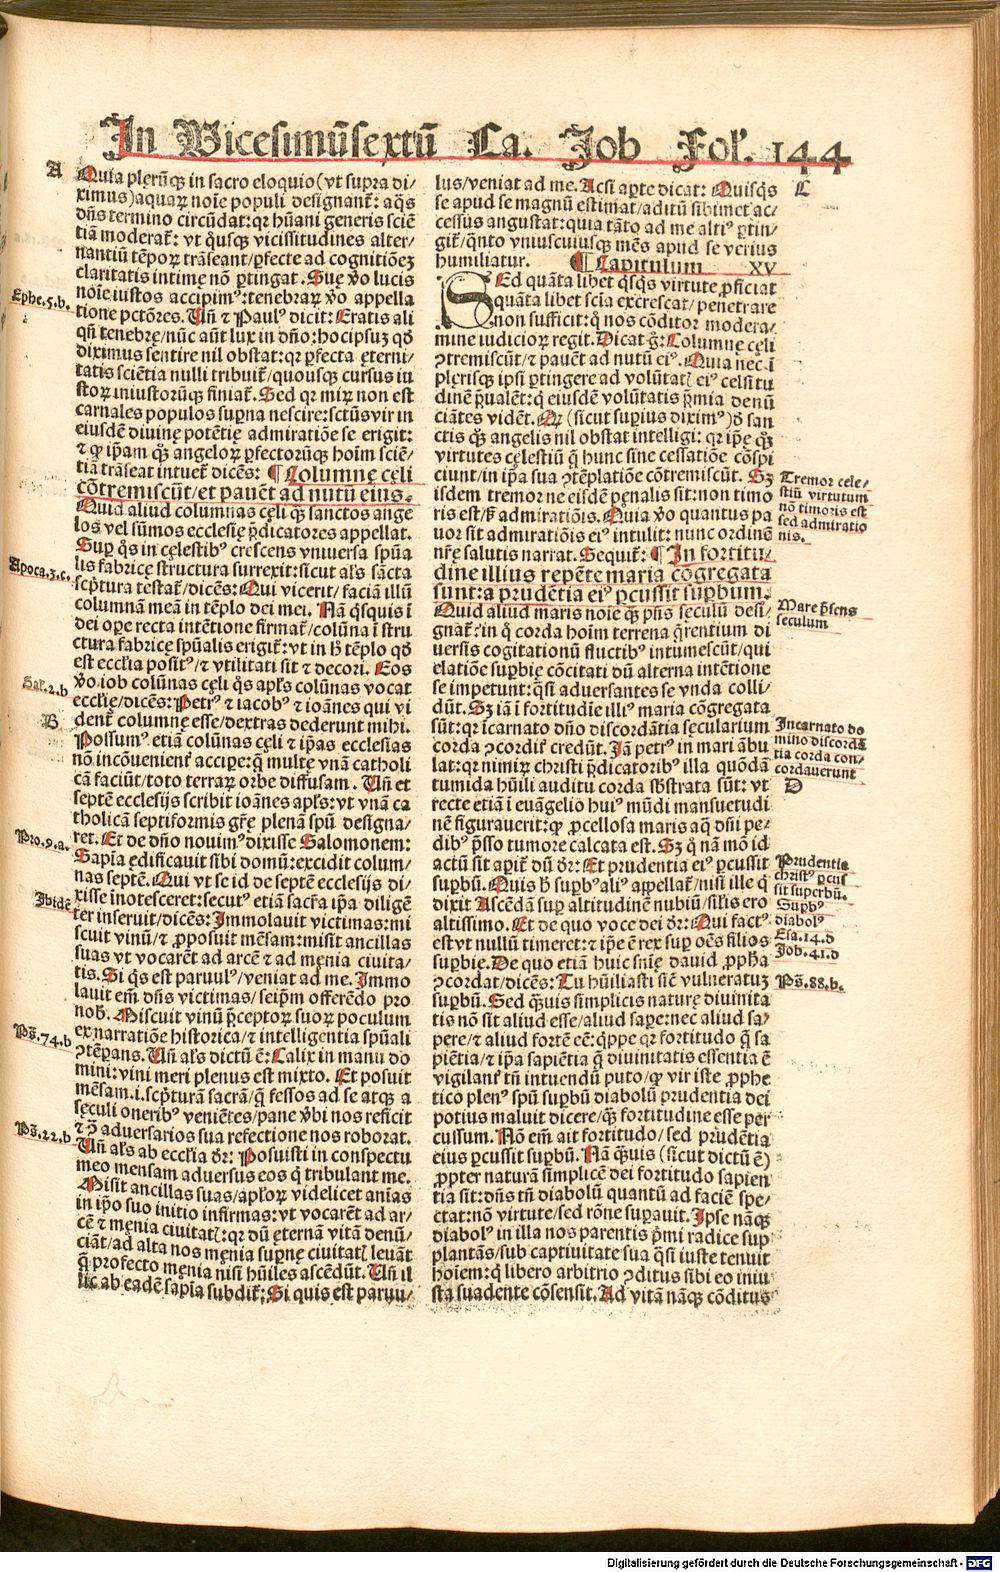 In Vicesimūsextū Ca. Job Fol'. 144
A
Quia plerūqꝫ in sacro eloquio (vt supra di/
ximus) aquaꝝ noīe populi designant᷑: aq̄s
dn̄s termino circūdat: qꝛ hūani generis sciē
tiā moderat᷑: vt qͥusqꝫ vicissitudines alter/
nantiū tēpoꝝ trāseant/ ꝑfecte ad cognitiōeꝫ
claritatis intimę nō ꝑtingat. Siue v̄o lucis
noīe iustos accipimꝰ: tenebraꝝ v̄o appella
Ephe.5.b.
tione pctōres. Un̄ ⁊ Paulꝰ dicit: Eratis ali
qn̄ tenebre/ nūc aūt lux in dn̄o: hoc ipsuꝫ qď
diximus sentire nil obstat: qꝛ ꝑfecta ęterni/
tatis sciētia nulli tribuit᷑/ quousqꝫ cursus iu
stoꝝ iniustorūqꝫ finiat᷑. Sed qꝛ miꝝ non est
carnales populos suꝑna nescire: sctūs vir in
eiusdē divinę potētię admiratiōe se erigit:
⁊ ꝙ ip̄am qͣꝫ angeloꝝ ꝑfectorūqꝫ hoīm sciē/
tiā trāseat intuet᷑ dicēs: ¶ Columnę cęli
cōtremiscūt/ et pauēt ad nutū eius.
Quid aliud columnas cęli qͣꝫ sanctos ange
los vel sūmos ecclesię p̄dicatores appellat.
Suꝑ qͦs in cęlestibꝰ crescens vniuersa spūa
Apoca.3.c.
lis fabrice structura surrexit: sicut al's sācta
scp̄tura testat᷑/ dicēs: Qui vicerit/ faciā illū
columnā meā in tēplo dei mei. Nā qͥsquis ī
dei oꝑe recta intētione firmat᷑/ colūna ī stru
ctura fabrice spūalis erigit᷑: vt in h̄ tēplo qď
est eccl'ia positꝰ/ ⁊ vtilitati sit ⁊ decori. Eos
Gal'.2.b
v̄o iob colūnas cęli qͦs apl's colūnas vocat
eccl'ię/ dicēs: Petrꝰ ⁊ iacobꝰ ⁊ ioānes qui vi
B
dent᷑ columnę esse/ dextras dederunt mihi.
Possumꝰ etiā colūnas cęli ⁊ ip̄as ecclesias
nō incōuenient᷑ accipe: q̄ multę vnā catholi
cā faciūt/ toto terraꝝ orbe diffusam. Un̄ et
septē ecclesijs scribit ioānes apl's: vt vnā ca
tholicā septiformis grę̄ plenā spū designa/
Pro.9.a.
ret. Et de dn̄o nouimꝰ dixisse Salomonem:
Sapīa edificauit sibi domū: excidit colum/
nas septē. Qui vt se id de septē ecclesijs di/
Ibidē
xisse inotesceret: secutꝰ etiā sacr̄a ip̄a diligē
ter inseruit/ dicēs: Immolauit victimas: mi
scuit vinū/ ⁊ ꝓposuit mēsam: misit ancillas
suas vt vocarēt ad arcē ⁊ ad męnia ciuita/
tis. Si qͥs est paruulꝰ/ veniat ad me. Immo
lauit em̄ dn̄s victimas/ seip̄m offerēdo pro
nob̄. Miscuit vinū p̄ceptoꝝ suoꝝ poculum
Ps̄.74.b
ex narratiōe historica/ ⁊ intelligentia spūali
ꝯtēꝑans. Un̄ al's dictū ē: Calix in manu do
mini: vini meri plenus est mixto. Et posuit
mēsam .i. scp̄turā sacrā/ q̄ fessos ad se atqꝫ a
sęculi oneribꝰ veniētes/ pane v̄bi nos reficit
Ps̄.22.b
⁊ ꝯ̄ adversarios sua refectione nos roborat.
Un̄ al's ab eccl'ia dr̄: Posuisti in conspectu
meo mensam aduersus eos qͥ tribulant me.
Misit ancillas suas/ apl'oꝝ videlicet anīas
in ip̄o suo initio infirmas: vt vocarēt ad ar/
cē ⁊ męnia ciuitatꝭ: qꝛ dū ęternā vitā denū/
ciāt/ ad alta nos męnia suꝑnę ciuitatꝭ leuāt
q̄ profecto męnia nisi hūiles ascēdūt. Un̄ il
lic ab eadē sapīa subdit᷑: Si quis est paruu/
lus/ veniat ad me. Acsi aꝑte dicat: Quisqͥs
C
se apud se magnū estimat/ aditū sibimet ac/
cessus angustat: quia tāto ad me altiꝰ ꝑtin/
git᷑/ qͣnto vniuscuiusqꝫ mēs apud se verius
humiliatur. ¶ Capitulum XV
SEd quāta libet qͥsqͥs virtute ꝓficiat
quāta libet scīa excrescat/ penetrare
non sufficit: qͥ nos cōditor modera/
mine iudicioꝝ regit. Dicat g̊: Columnę cęli
ꝯtremiscūt/ ⁊ pauēt ad nutū eiꝰ. Quia nec ī
plerisqꝫ ipsi ꝑtingere ad volūtatꝭ eiꝰ celsitu
dinē p̄ualēt: qͥ eiusdē volūtatis p̄mia denū
ciātes vidēt. Qꝛ (sicut suꝑius diximꝰ) ď san
ctis qͣꝫ angelis nil obstat intelligi: qꝛ ip̄ę qͣꝫ
virtutes cęlestiū q̄ hunc sine cessatiōe cōspi
ciunt/ in ip̄a sua ꝯtēplatiōe cōtremiscūt. Sꝫ
Tremor cele/
stiū virtutum
nō timoris est
sed admiratio
nis.
isdem tremor ne eisdē pęnalis sit: non timo
ris est/ sꝫ admiratiōis. Quia v̄o quantus pa
uor sit admiratiōis eiꝰ intulit: nunc ordinē
nrę̄ salutis narrat. Sequit᷑: ¶ In fortitu/
dine illius repēte maria cōgregata
sunt: a prudētia eiꝰ ꝑcussit suꝑbum.
Mare p̄sens
seculum
Quid aliud maris noīe qͣꝫ p̄ns sęculū desi/
gnat᷑: in qͦ corda hoīm terrena q̄rentium di
uersis cogitationū fluctibꝰ intumescūt/ qui
elatiōe suꝑbię cōcitati dū alterna intētione
se impetunt: qͣsi aduersantes se vnda colli/
dūt. Sꝫ iā ī fortitudīe illiꝰ maria cōgregata
Incarnato do
mino discordā
tia corda con/
cordauerunt
sūt: qꝛ īcarnato dn̄o discordātia sęcularium
corda ꝯcordit᷑ credūt. Iā petrꝰ in mari ābu
lat: qꝛ nimiꝝ christi p̄dicatoribꝰ illa quōdā
D
tumida hūili auditu corda sb̄strata sūt: vt
recte etiā ī euāgelio huiꝰ mūdi mansuetudi
nē figurauerit: ꝙ ꝓcellosa maris aq̄ dn̄i pe/
dibꝰ p̄sso tumore calcata est. Sꝫ qͦ nā mō id
Prudentia
christꝰ ꝑcus
sit superbū.
actū sit aꝑit᷑ dū dr̄: Et prudentia eiꝰ ꝑcussit
suꝑbū. Quis h̄ suꝑbꝰ aliꝰ appellat᷑/ nisi ille qͥ
Suꝑbꝰ
diabolꝰ
dixit Ascēdā suꝑ altitudinē nubiū/ sil'is ero
altissimo. Et de quo voce dei dr̄: Qui factꝰ
Esa.14.d
Job.41.d
est vt nullū timeret: ⁊ ip̄e ē rex suꝑ oēs filios
suꝑbię. De quo etiā huic sn̄ię dauid ꝓph̄a
Ps̄.88.b.
ꝯcordat/ dicēs: Tu hūiliasti sic̄ vulneratuꝫ
suꝑbū. Sed qͣꝫuis simplicis naturę diuinita
tis nō sit aliud esse/ aliud saꝑe: nec aliud sa/
pere/ ⁊ aliud fortē eē: qͥppe qꝛ fortitudo q̄ sa
piētia/ ⁊ ip̄a sapiētia q̄ diuinitatis essentia ē
vigilant᷑ tn̄ intuendū puto/ ꝙ vir iste ꝓphe
tico plenꝰ spū suꝑbū diabolū prudentia dei
potius maluit dicere/ qͣꝫ fortitudine esse per
cussum. Nō em̄ ait fortitudo/ sed prudētia
eius ꝑcussit suꝑbū. Nā qͣꝫuis (sicut dictū ē)
ꝓpter naturā simplicē dei fortitudo sapien
tia sit: dn̄s tn̄ diabolū quantū ad faciē spe/
ctat: nō virtute/ sed rōne suꝑauit. Ipse nāqꝫ
diabolꝰ in illa nos parentis p̄mi radice sup
plantās/ sub captiuitate sua qͣsi iuste tenuit
hoīem: qͥ libero arbitrio ꝯditus sibi eo iniu
sta suadente cōsensit. Ad vitā nāqꝫ cōditus
Digitalisierung gefördert durch die Deutsche Forschungsgemeinschaft - DFG